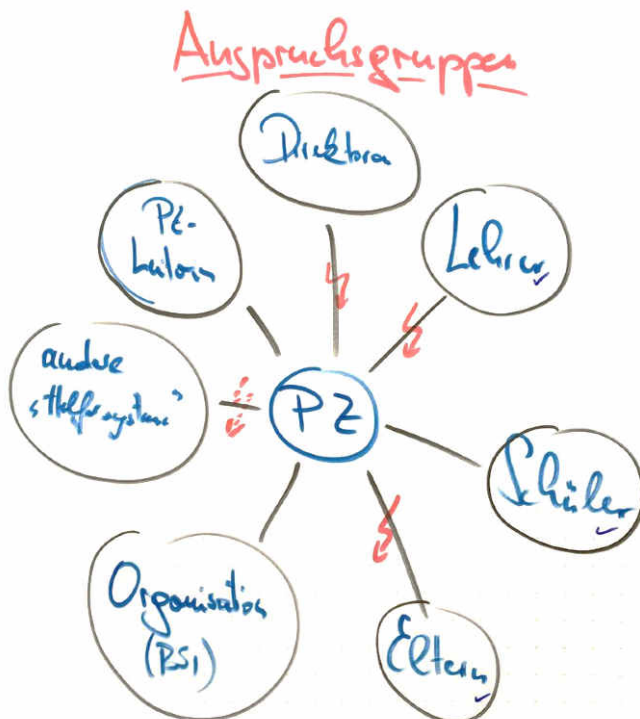 Anspruchsgruppen
Direktoren
Lehrer
PZ-
Leitern
andere
„Helfersysteme"
PZ
Schüler
Organisation
(PSI)
Eltern